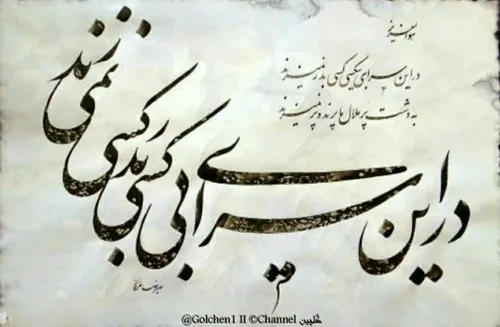 هوالعزیز
در این سرای بی‌کسی کسی به در نمی‌زند
به دشت پر ملال ما پرنده پر نمی‌زند
در این سرای بی کسی کسی به در نمی زند
@Golchen1 II ©Channel گلچین